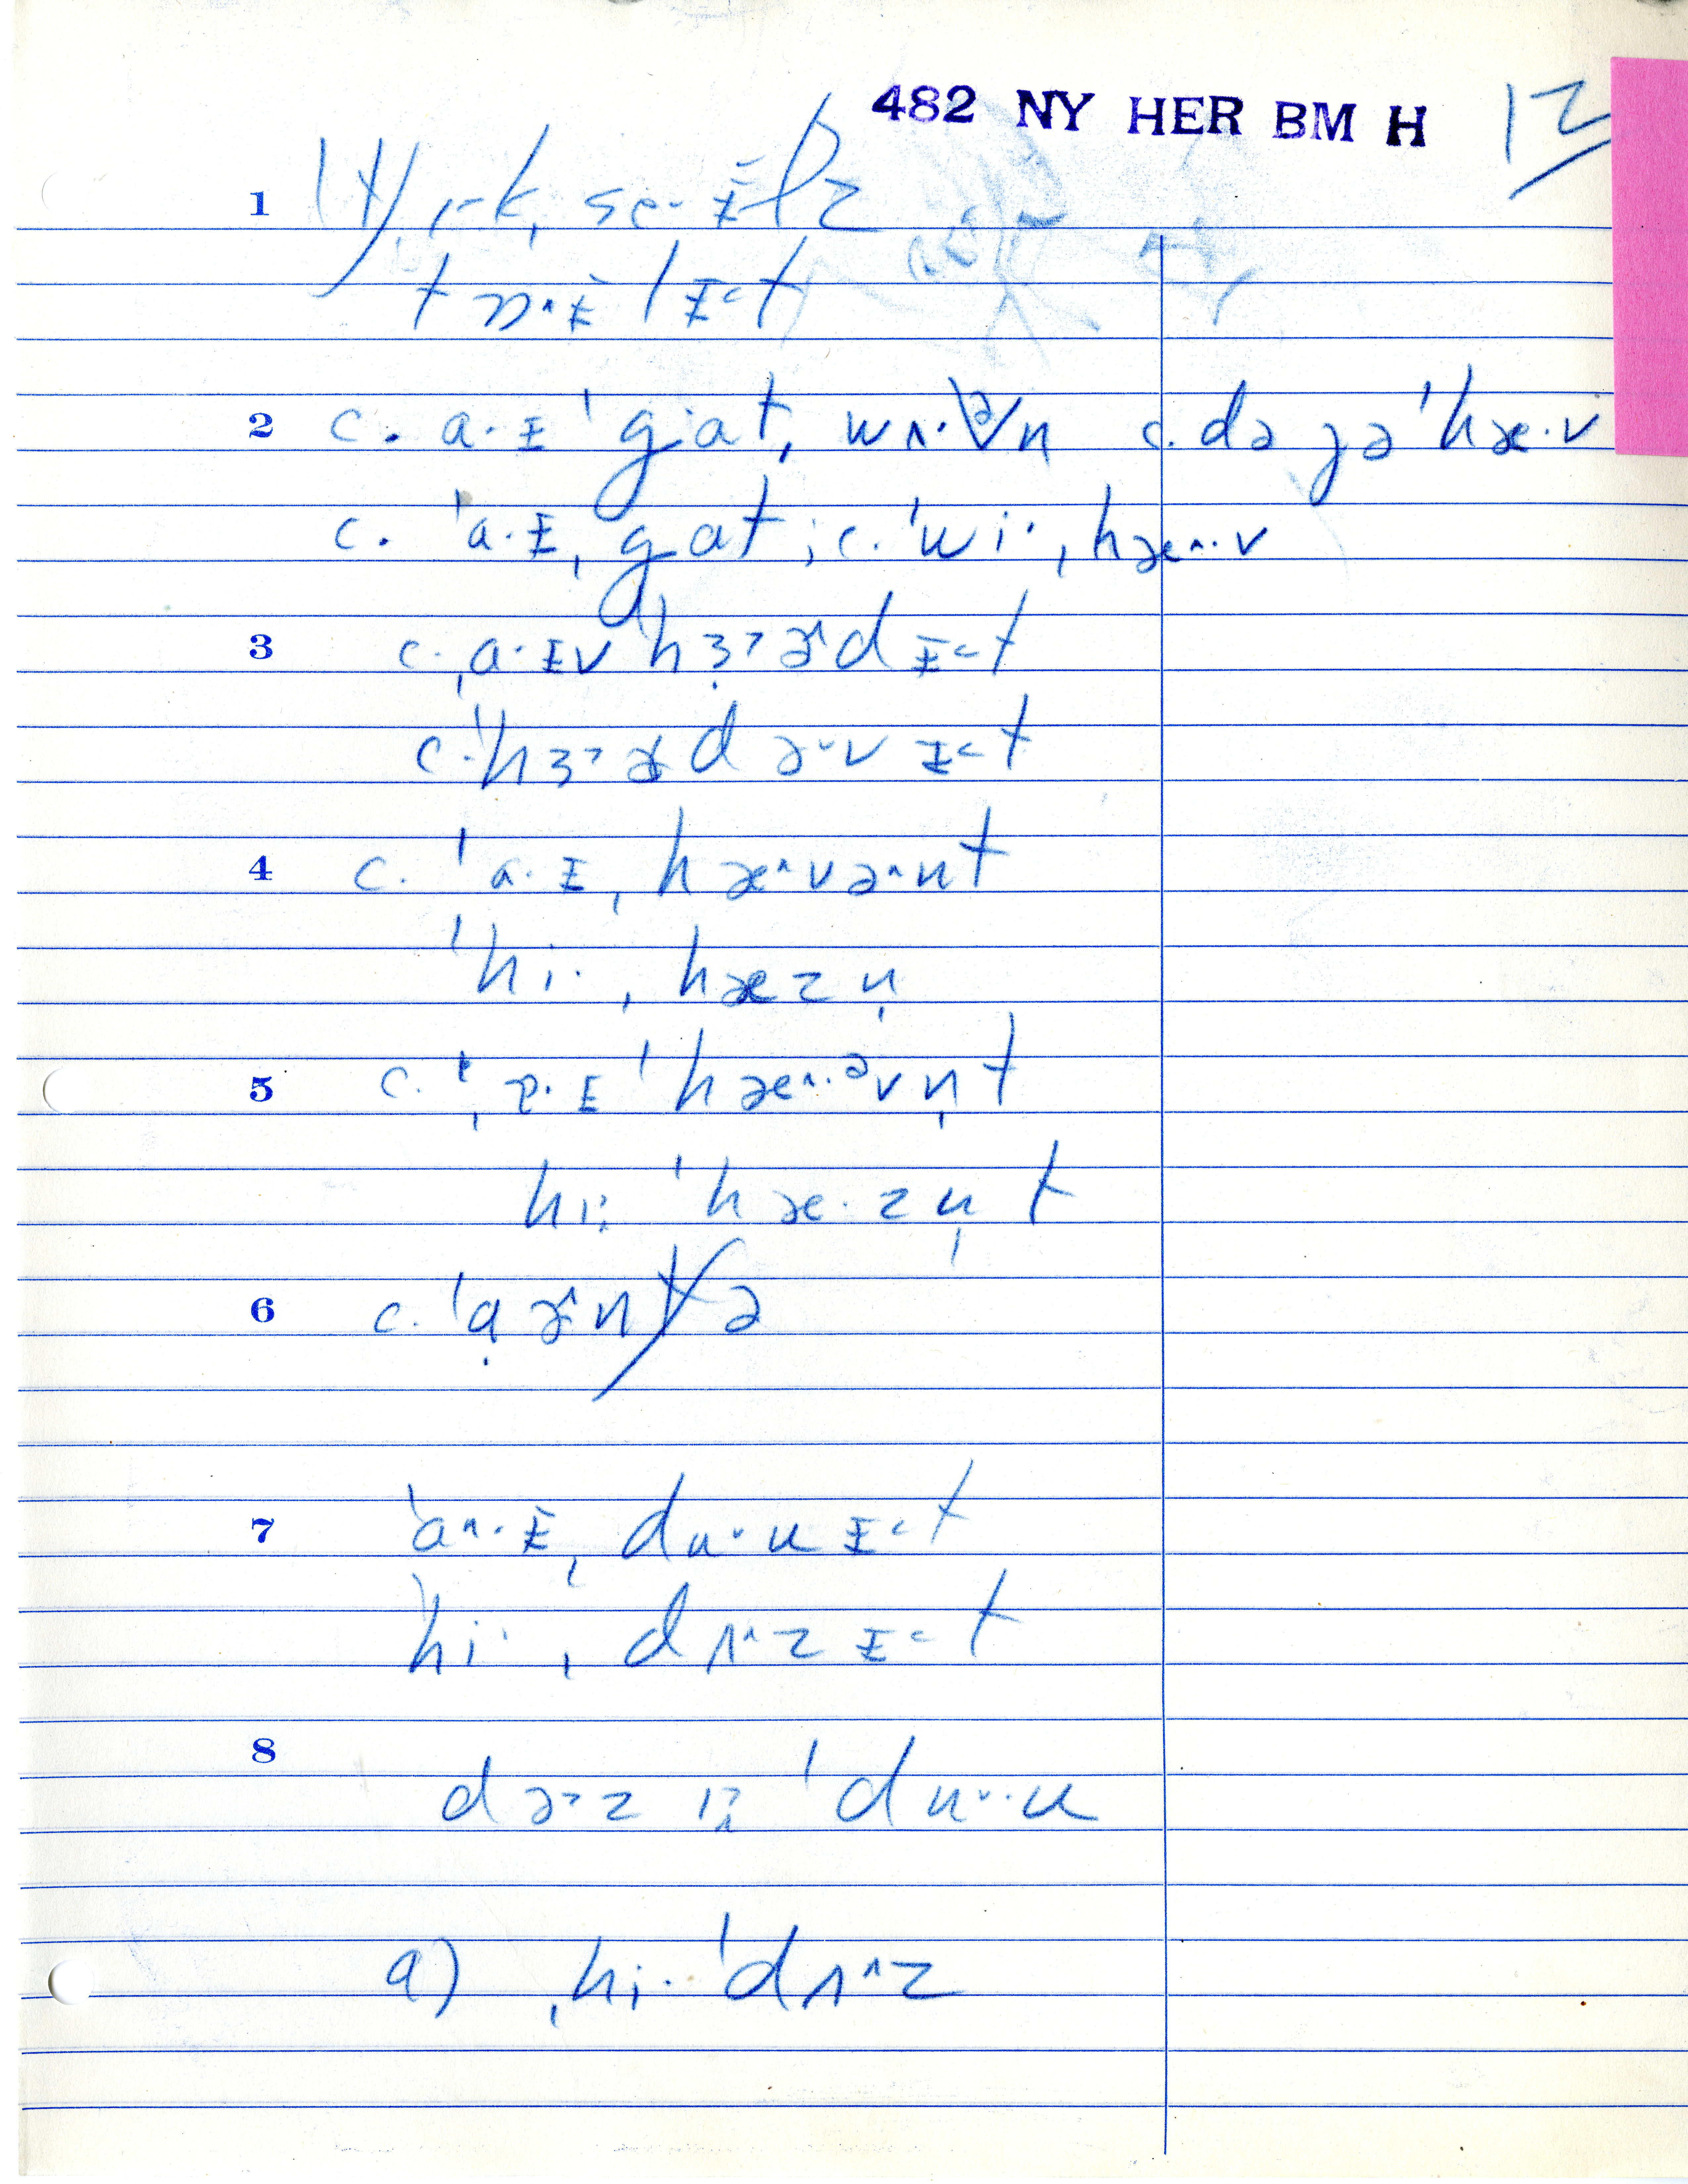 482 NY HER BM H 12
1
2 c. a·ɪ ˈgat, wʌ·ᵊn c. də jə ˈhæ·v
c. ˈa·ɪ, gat; c. ˈwi·, hæ^·v
3 c. ˌa·ɪv hɜ˃ə^d ɪ˂t
c. ˈhɜ˃əd ə˅v ɪ˂t
4 c. ˈa·ɪ, hæ^və^nt
ˈhi·, hæzn̩
5 c. ɐ·ɪ ˈhæ^·ᵊvn̩t
hi: ˈhæ·zn̩t
6 c. ˈa ə^ntʃə
7 ˈa^·ɪ, du˅u ɪ˂t
ˈhi·, dʌ^z ɪ˂t
8 də˃z ˈdu˅·u
a) ˌhi· ˈdʌ^z